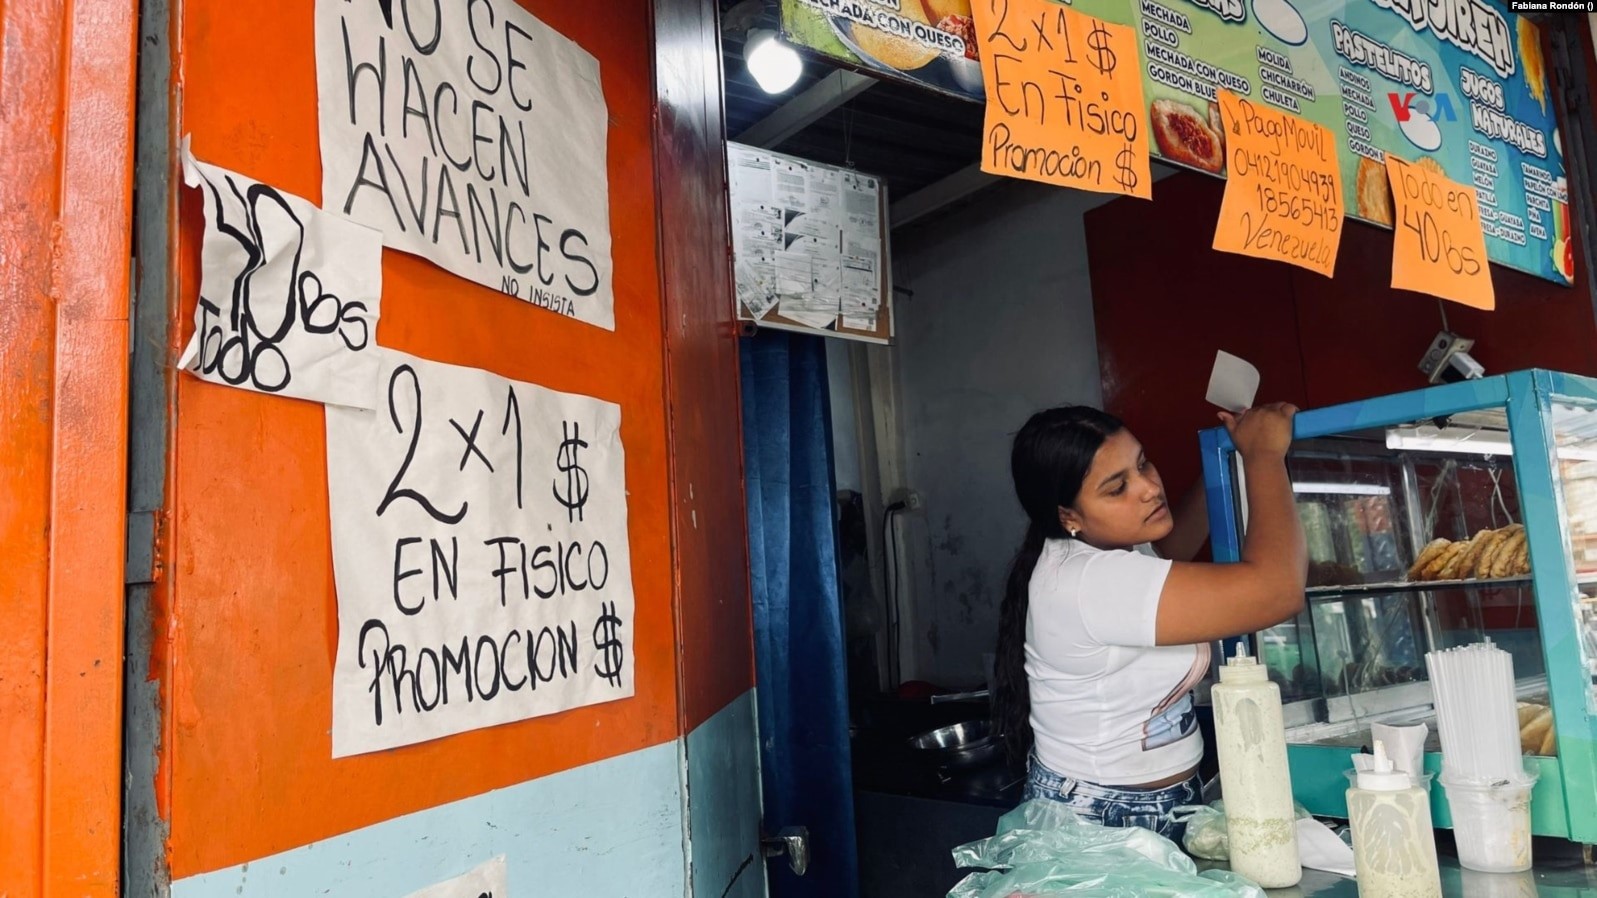 NO SE
HACEN
AVANCES
NO INSISTA
40 Bs
Todo
2x1 $
EN FISICO
PROMOCION $
MECHADA CON QUESO
2x1 $
En Fisico
Promocion $
MECHADA
POLLO
MECHADA CON QUESO
GORDON BLUE
MOLIDA
CHICHARRÓN
CHULETA
Pago Movil
04121904939
18565413
Venezuela
PASTELITOS
ANDINOS
MECHADA
POLLO
QUESO
GORDON B
VOA
Todo en
40 Bs
JIREH
JUGOS
NATURALES
DURAZNO
GUAYABA
MELÓN
FRESA-GUAYABA
FRESA-DURAZNO
TAMARINDO
PAPELÓN CON LIMÓN
PARCHITA
PIÑA
AVENA
Fabiana Rondón ()